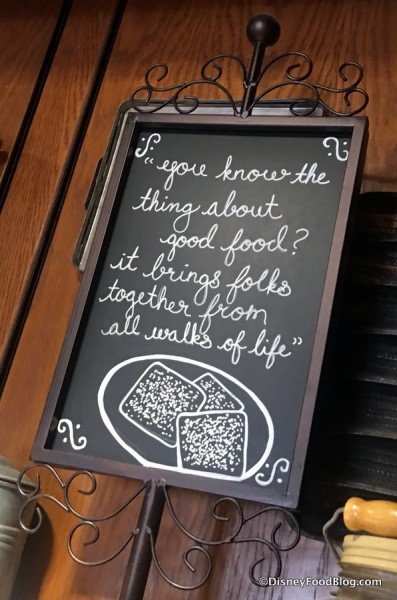 "you know the
thing about
good food?
it brings folks
together from
all walks of life"
©DisneyFoodBlog.com